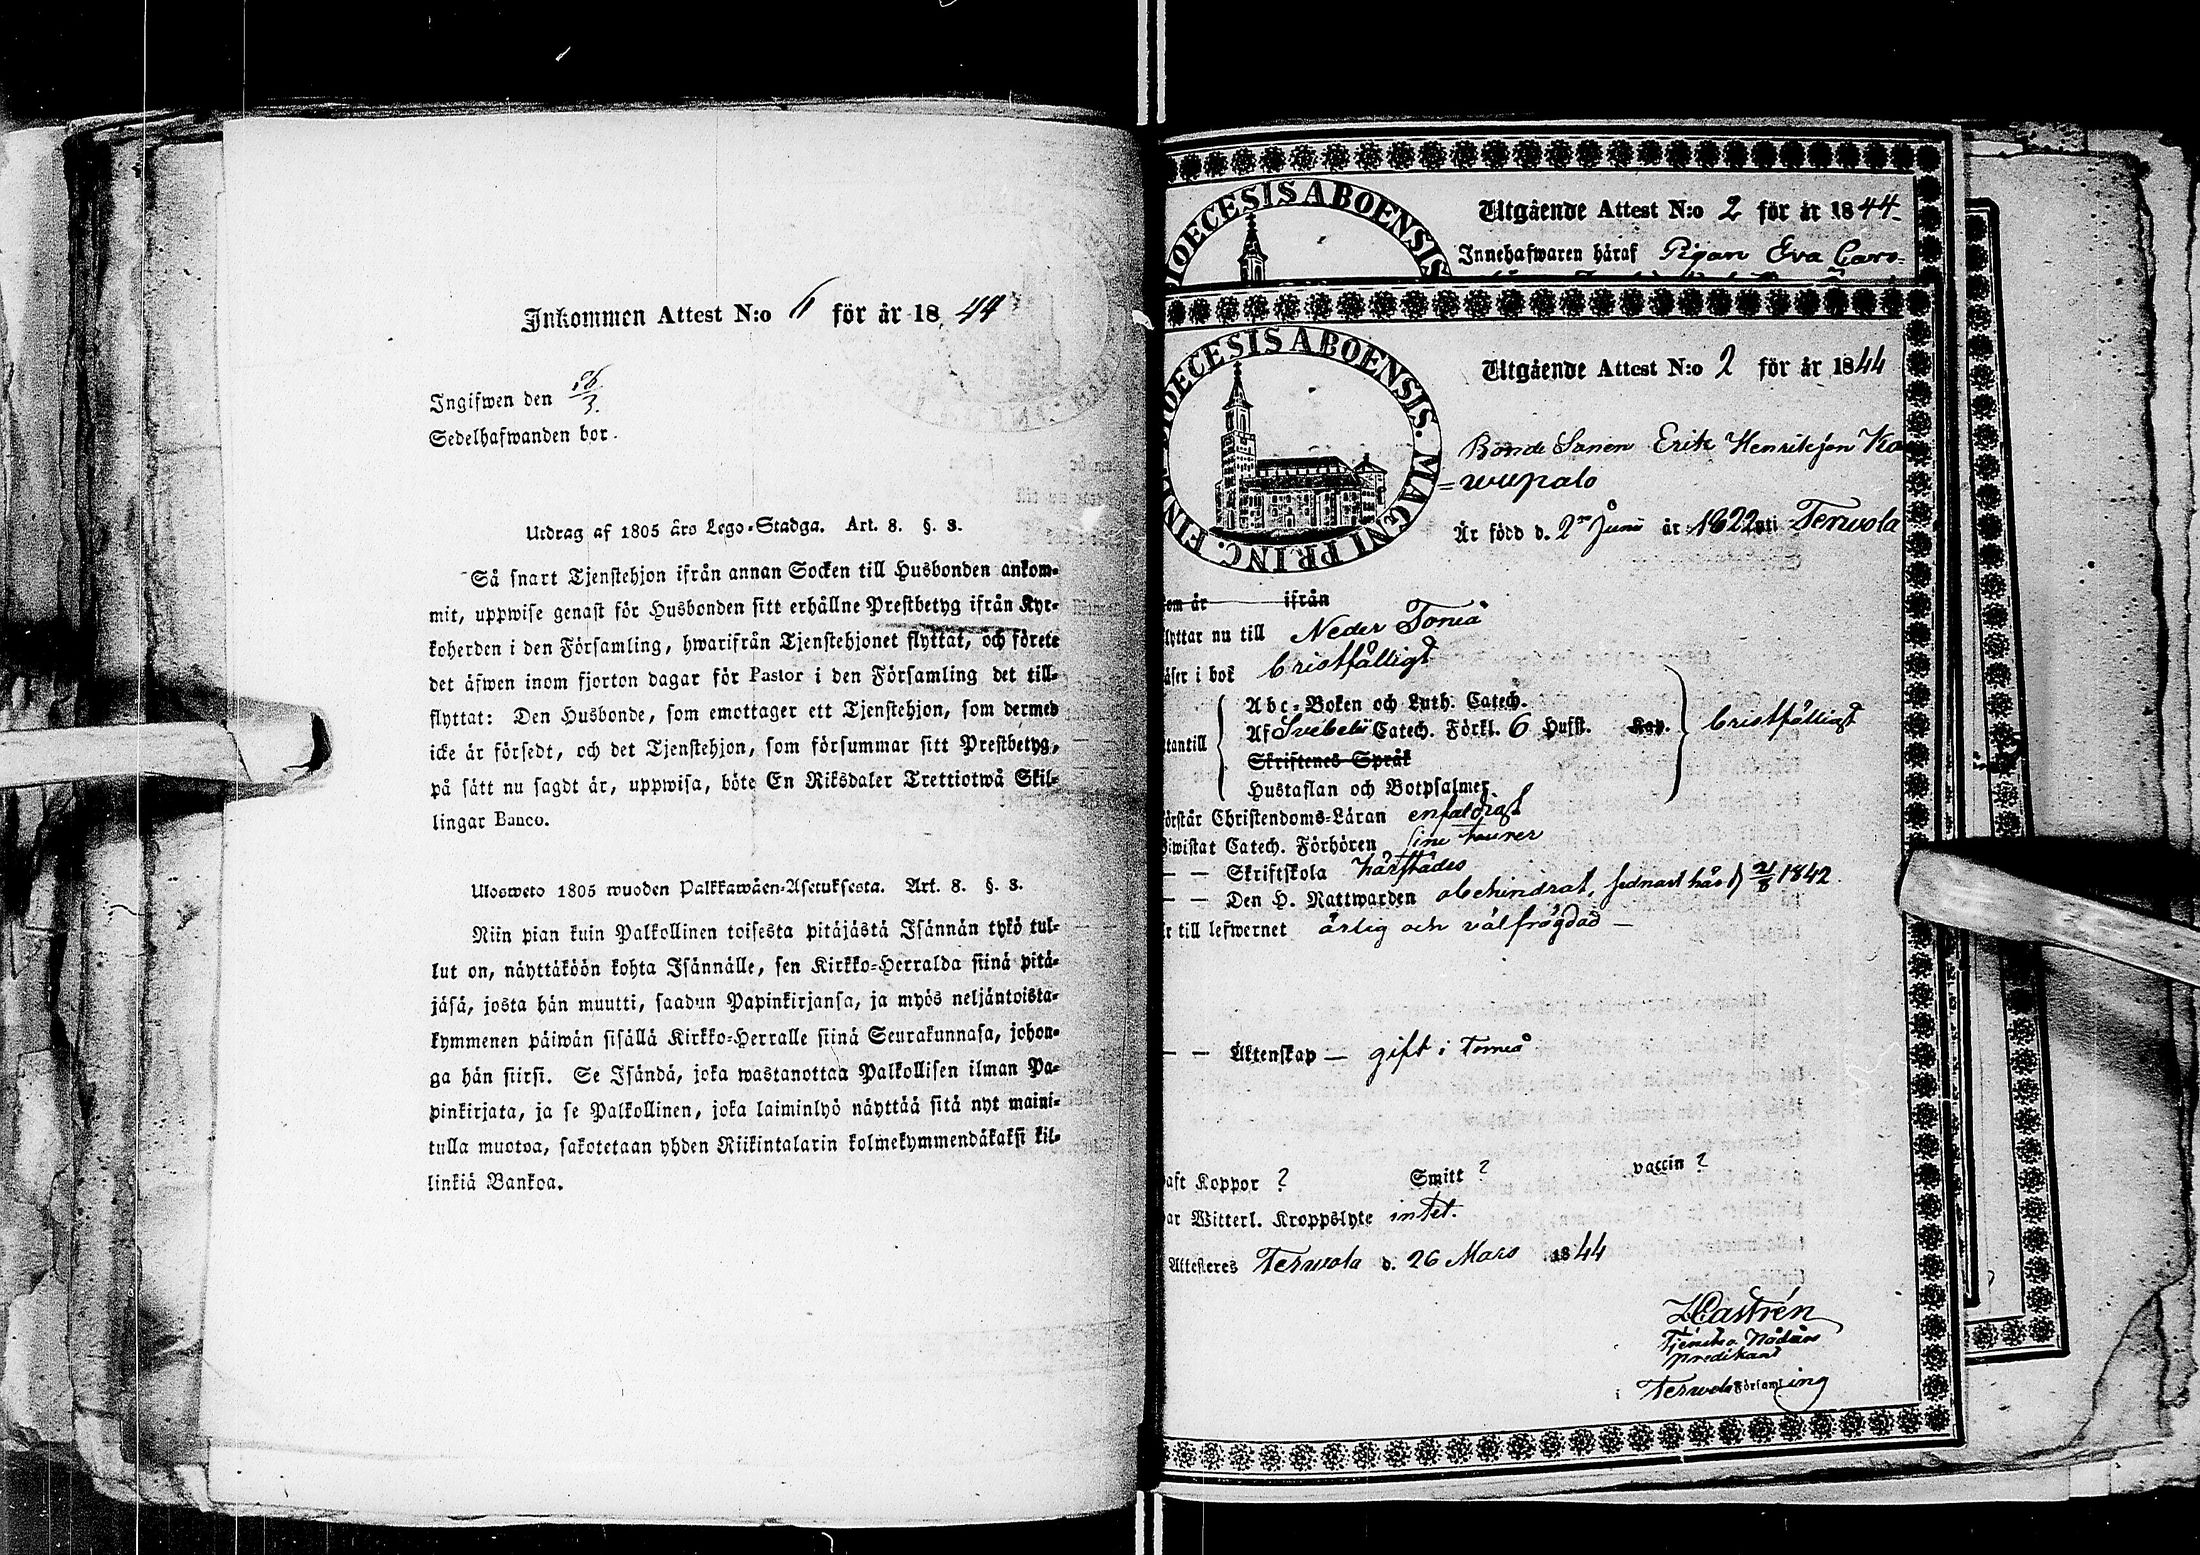 Inkommen Attest N:o 6 för år 1844
Ingifwen den 26/3.
Sedelhafwanden bor.
Utdrag af 1805 års Lego-Stadga. Art. 8. §. 3.
Så snart Tjenstehjon ifrån annan Socken till Husbonden ankom-
mit, uppwise genast för Husbonden sitt erhållne Prestbetyg ifrån Kyr-
koherden i den Församling, hwarifrån Tjenstehjonet flyttat, och förete
det äfwen inom fjorton dagar för Pastor i den Församling det till-
flyttat: Den Husbonde, som emottager ett Tjenstehjon, som dermed
icke är försedt, och det Tjenstehjon, som försummar sitt Prestbetyg,
på sätt nu sagdt är, uppwisa, böte En Riksdaler Trettiotwå Skil-
lingar Banco.
Ulosweto 1805 wuoden Palkkawäen-Asetuksesta. Art. 8. §. 3.
Niin pian kuin Palkollinen toisesta pitäjästä Isännän tykö tul-
lut on, näyttäköön kohta Isännälle, sen Kirkko-Herralda siinä pitä-
jäsä, josta hän muutti, saadun Papinkirjansa, ja myös neljäntoista-
kymmenen päiwän sisällä Kirkko-Herralle siinä Seurakunnasa, johon-
ga hän siirsi. Se Isändä, joka wastanottaa Palkollisen ilman Pa-
pinkirjata, ja se Palkollinen, joka laiminlyö näyttää sitä nyt maini-
tulla muotoa, sakotetaan yhden Riikintalarin kolmekymmendäkaksi kil-
linkiä Bankoa.
DIOECESIS ABOENSIS
Utgående Attest N:o 2 för år 1844
Innehafwaren häraf Pigan Eva Cars-
DIOECESIS ABOENSIS. MAGNI PRINC. FIN
Utgående Attest N:o 2 för år 1844
Bonde Sonen Erik Henriksson Ko
=wupalo
Är född d. 2 Juni år 1822 uti Terwola
om år ifrån
lyttar nu till Neder Torneå
äser i bok bristfälligt
Abc-Boken och Luth. Catech.
Af Svebelii Catech. Förkl. 6 Hufst. Kap. bristfälligt
tantill
Skriftenes Språk
Hustaflan och Botpsalmer
örstår Christendoms-Läran enfaldigt
wistat Catech. Förhören sine turer
— — Skriftskola härstädes
— — Den H. Nattwarden obehindrat, sednast här d 21/8 1842
r till lefwernet ärlig och välfrägdad —
— — Äktenskap — gift i Torneå
aft Koppor ? Smitt ? vaccin ?
ar Witterl. Kroppslyte intet.
Attesteres Terwola d. 26 Mars 1844
Castrén
Tjenstg. Nådårs
predikant
i Terwola Församling